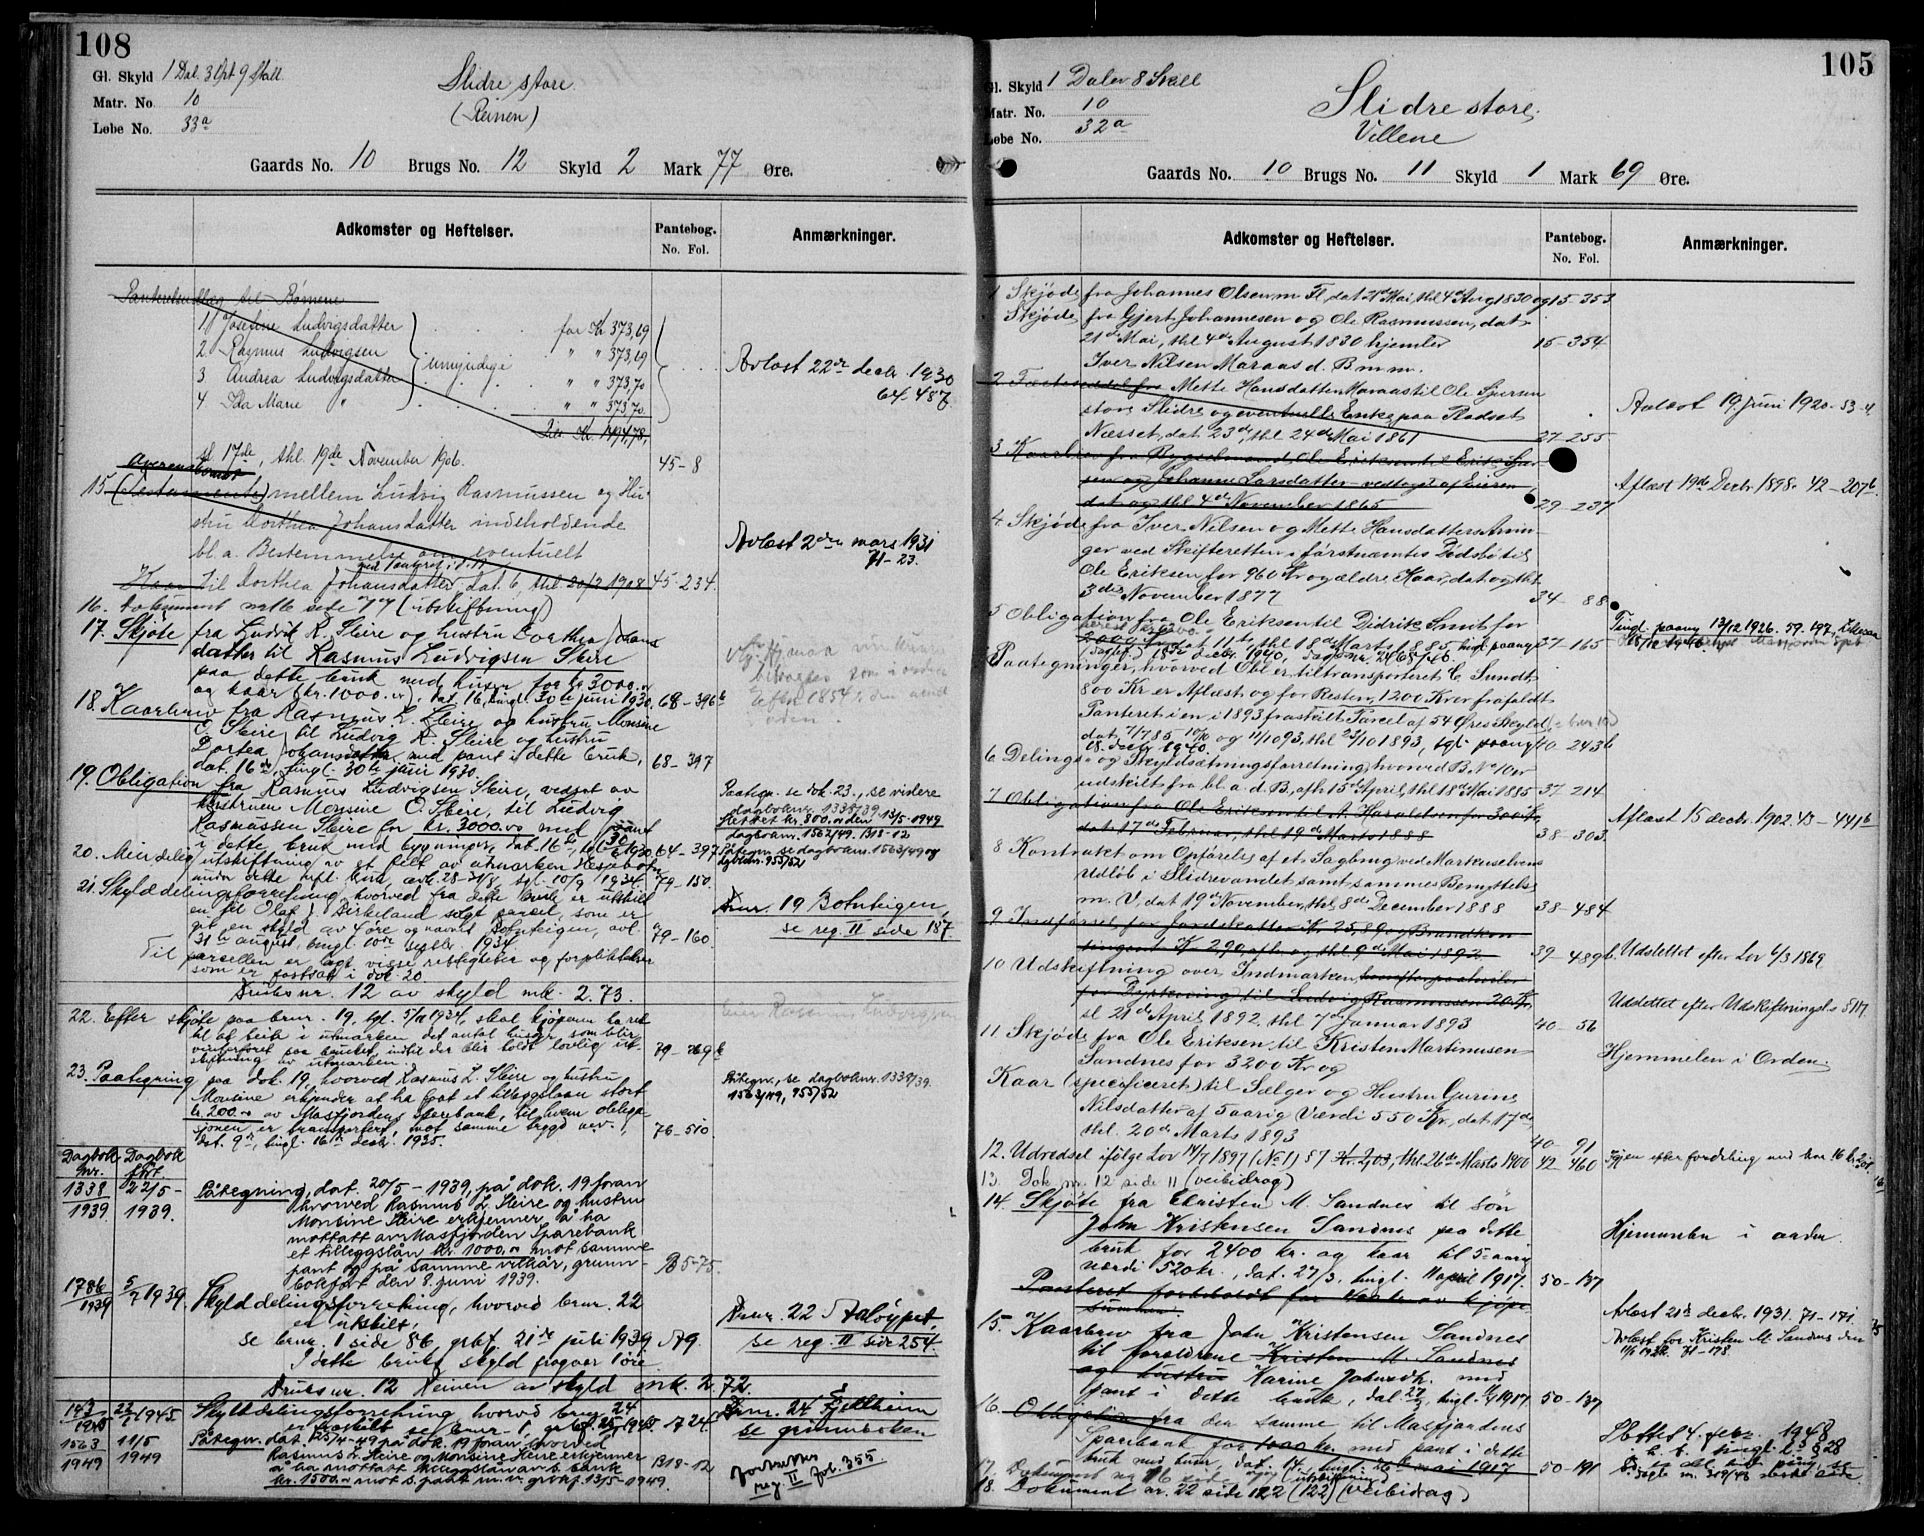 108
Gl. Skyld 1 Dal. 3 Ort 9 Skill.
Matr. No. 10
Løbe No. 33a
Slidre store
(Reinen)
Gaards No. 10 Brugs No. 12 Skyld 2 Mark 77 Øre.
Adkomster og Heftelser.
Pantebog.
No. Fol.
Anmærkninger.
til Børnene
1) Josefine Ludvigsdatter for Kr 373,69
2. Rasmus Ludvigsen " " 373,69
3 Andrea Ludvigsdatter umyndige " " 373,70
4 Ida Marie " " " 373,70
Kr. 1494,78,
Avlæst 22de decbr. 1930
64-487
sl. 17de, thl. 19de November 1906. 45-8
15 (Testamente) mellem Ludvig Rasmussen og Hu-
stru Dorthea Johansdatter indeholdende
bl. a. Bestemmelse om eventuelt
Kaar til Dorthea Johansdatter, dat. 6, thl 20/2 1908 45-234.
Avlæst 2den mars 1931
71-23.
16. Dokument nr 16 side 77 (utskiftning)
17. Skjøte fra Ludvik R. Sleire og hustru Dorthea Johans
datter til Rasmus Ludvigsen Sleire
paa dette bruk med huser for kr 3000.00
og kaar (kr. 1000.00), dat 16, tingl. 30te juni 1930. 68-396b
18. Kaarbrev fra Rasmus L. Sleire og hustru Monsine
O. Sleire til Ludvig R. Sleire og hustru
Dortea Johansdatter med pant i dette bruk,
dat. 16de, tingl. 30te juni 1930. 68-397
19. Obligation fra Rasmus Ludvigsen Sleire, vedtat av
hustruen Monsine O. Sleire, til Ludvig
Rasmussen Sleire for kr. 3000.00 med pant
i dette bruk med bygninger, dat. 16de, tgl 30/6 1930. 64-397
Paategn. se dok. 23., se videre
dagboknr. 1338/39
Slettet kr. 800.00 den 13/5-1949
dagboknr. 1562/49. B18-12
Påtegn se dagboknr. 1563/49 og
dgboknr. 955/52
20. Meierdelig utskiftning av et felt av utmarken Hespebotn
under dette m.fl. bruk avh. 28-31/8, tgl. 10/9 1934. 79-150.
21. Skylddelingsforretning, hvorved fra dette bruk er utskilt
en til Olaf J. Birkeland solgt parsel, som er
git en skyld av 4 øre og navnet Botnteigen, avl.
31te august, tingl. 10de septbr. 1934. 79-160.
Bnr. 19 Botnteigen,
se reg. II side 187.
Til parsellen er lagt visse rettigheter og forpliktelser
som er fastsat i dok. 20
Bruks nr. 12 av skyld mk. 2.73.
22. Efter skjøte paa brnr. 19, tgl. 5/11 1934, skal kjøperen ha ret
til at beite i utmarken det antal husdyr, som blir
vinterforet paa bruket, indtil der blir holdt lovlig ut-
skiftning av utmarken. 79-269b
23. Paategning paa dok. 19, hvorved Rasmus L. Sleire og hustru
Monsine erkjender at ha faat et tilleggslaan stort
kr. 200.00 av Masfjordens Sparebank, til hvem obliga-
sjonen er transportert, mot samme trygd m.v.,
dat. 9de, tingl. 16de decbr. 1935. 76-510
Påtegn., se dagboknr. 1338/39.
1563/49, 955/52
Dagbok nr.
Dagbok ført
1338
1939
22/5-
1939.
Påtegning, dat. 20/5-1939, på dok. 19 foran
hvorved Rasmus L. Sleire og hustru
Monsine Sleire erkjenner å ha
mottatt av Masfjorden Sparebank
et tilleggslån kr. 1000.00 mot samme
pant og på samme vilkår, grunn-
bokført den 8. juni 1939. B5-75.
1786
1939
5/7 1939
Skylddelingsforretning, hvorved brnr. 22
er utskilt,
se brnr. 1 side 86, grbf. 21de juli 1939. A9.
I dette bruks skyld fragaar 1 øre
Brnr. 22 Stalöypet,
se reg. II side 254.
Bruks nr. 12 Reinen av skyld mk. 2.72.
143
1945
22/1 1945
Skylddelingsforretning hvorved brnr 24
er fraskilt, se brnr. 1, grbf. 25/1 1945. 1724.
Brnr. 24 Fjellheim
se grunnboken
1563
1949
11/5
1949
Påtegn. dat. 25/4-49 på dok. 19 foran hvorved
Rasmus L. Sleire og Monsine Sleire erkjenner
å ha mottatt tilleggslån av s. bank
kr. 1500.00 mot s. pant m.v. grbkf. 13/5-1949. B18-12
fortsettes
reg. II fol. 355
105
Gl. Skyld 1 Daler 8 Skill
Matr. No. 10
Løbe No. 32a
Slidre store,
Villene
Gaards No. 10 Brugs No. 11 Skyld 1 Mark 69 Øre.
Adkomster og Heftelser.
Pantebog.
No. Fol.
Anmærkninger.
1 Skjøde fra Johannes Olsen m. Fl. dat. 21de Mai, thl. 4de Aug 1830 og 15-353
Skjøde fra Gjert Johannesen og Ole Rasmussen, dat.
21de Mai, thl. 4de August 1830 hjemler 15-354
Iver Nilsen Maraas d. B m.m.
2 Fæsteseddel fra Mette Hansdatter Maraas til Ole Sjursen
store Slidre og eventuelle Enke paa Pladset
Næsset, dat. 23de, thl. 24de Mai 1861 27-255
Avlæst 19 juni 1920. 53-4
3 Kaarbrev fra Bygselmand Ole Eriksen til Erik
og Johanne Larsdatter vedtaget af Eieren
dat. og thl. 4de November 1865 29-237
Aflæst 19de Decbr. 1898. 42-207b.
4 Skjøde fra Iver Nilsen og Mette Hansdatters Arvin-
ger ved Skifteretten i førstnævntes Dødsbo til
Ole Eriksen for 960 Kr og ældre Kaar, dat og thl.
3die November 1877 34-88
5 Obligation fra Ole Eriksen til Didrik Smit for
2000 Kr, dat. 11te, thl 18de Marts 1885, tingl. paany 37-165
18de decbr. 1940, dagb.nr. 2468/40.
Tingl. paany 13/12 1926. 59.197,
Paategninger, hvorved Obl. er tiltransporteret C. Sundt
800 Kr er Aflæst og for Resten, 1200 Kr er frafaldt
Panteret i en i 1893 fraskilt Parcel af 54 Øres Skyld
dat 7/7 85 og 11/10 93, thl 23/10 1893, tgl. paany 40-243b
18. decbr 1940.
6 Delings- og Skyldsætningsforretning hvorved B. No 10 er
udskilt fra bl. a. d. B. afh. 15de April, thl. 18de Mai 1885 37-214
7 Obligation fra Ole Eriksen til A. Haraldsen for 300 Kr,
dat. 17de Februar, thl 19de Marts 1888 38-303.
Aflæst 15 decbr. 1902. 43-441b
8 Kontrakt om Opførelse af et Sagbrug ved Markuselvens
Udløb i Slidrevandet samt sammes Benyttelse
m. V., dat 19de November, thl. 8de December 1888 38-484
9 Indførsel for Jordskatter Kr 25,89 og Brandkon
tingent Kr 2,90, afh. og thl. 9de Mai 1892 39-489b
Udslettet efter Lov 6/3 1869
10 Udskiftning over Indmarken,
for Dyrkning til Ludvig Rasmussen 20 Kr,
sl 21de April 1892, thl 7de Januar 1893 40-56
Udslettet efter Udskiftningsl. § 117
11 Skjøde fra Ole Eriksen til Kristen Martinusen
Sandnes for 3200 Kr og
Kaar (specificeret) til Sælger og Hustru Gurine
Nilsdatter af 5 aarig Værdi 550 Kr., dat 17de,
thl. 20de Marts 1893 40-91
Hjemmelen i Orden.
12. Udredsel ifølge Lov 14/7 1897 (No 1) § 7 Kr. 2,03, thl. 26de Marts 1900 42-460
13. Dok. nr. 12 side 11 (veibidrag)
14. Skjøte fra Christen M. Sandnes til søn
John Kristensen Sandnes paa dette
bruk for 2400 kr. og kaar til 5-aarig
værdi 520 kr., dat. 27/3, tingl. 11 april 1917. 50-137
Hjemmelen i orden.
Panteret forbeholdt for av kjøpe
summen
15. Kaarbrev fra John Kristensen Sandnes
til forældrene Kristen M. Sandnes
og hustru Karine Johnsdtr. med
pant i dette bruk, dat. 27/3, tingl. 11/4 1917. 50-137
Avlæst 21de decbr. 1931. 71-171.
Avlæst for Kristen M. Sandnes den
16. Obligation fra den samme til Masfjordens
Sparebank for 1000 kr. med pant i dette
bruk med huser, dat. 14, tingl. 26 mai 1917 50-191
Slettet 4. febr. 1948
17. Dokument nr 16 side (utskiftning)
18. Dokument nr. 22 side 122 (122) (veibidrag)